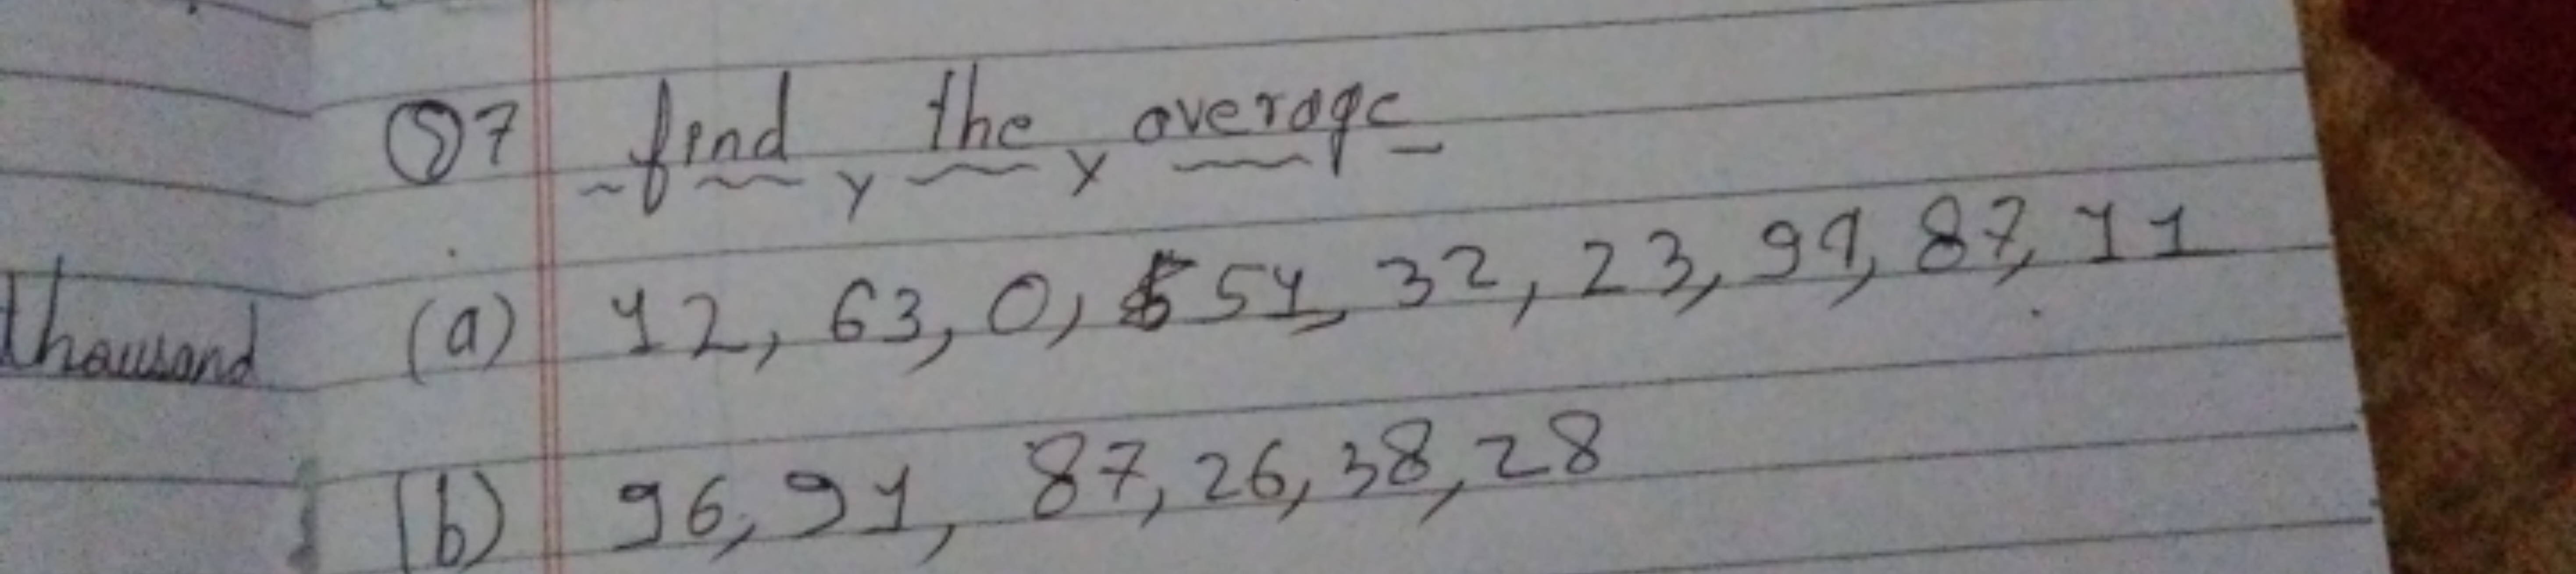 Q7 find the average
(a) 12, 63, 0, 51, 32, 23, 99, 87, 11
thousand
(b) 96, 91, 87, 26, 38, 28